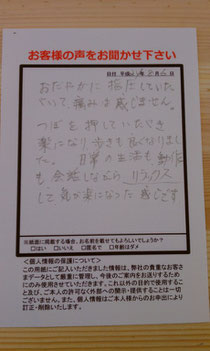 お客様の声をお聞かせ下さい
日付 平成 年 月 日
おだやかに指圧していた
だいて痛みは感じません。
つぼを押していただき
楽になり歩きも良くなりまし
た。 日常の生活も動作
も会話しながら、リラックス
して気が楽になった感じです
※紙面に掲載する場合、お名前を載せてもよろしいでしょうか？
□はい □いいえ □匿名で □年齢はダメ
＜個人情報の保護について＞
この用紙にご記入いただきました情報は、弊社の貴重なお客さ
まデータとして厳重に管理し、今後のご案内をお送りするため
にのみ使用させていただきます。これ以外の目的で使用するこ
と及び、ご本人の許可なく外部への開示・提供することは一切
ございません。また、個人情報はご本人様からのお申出により
訂正・削除いたします。